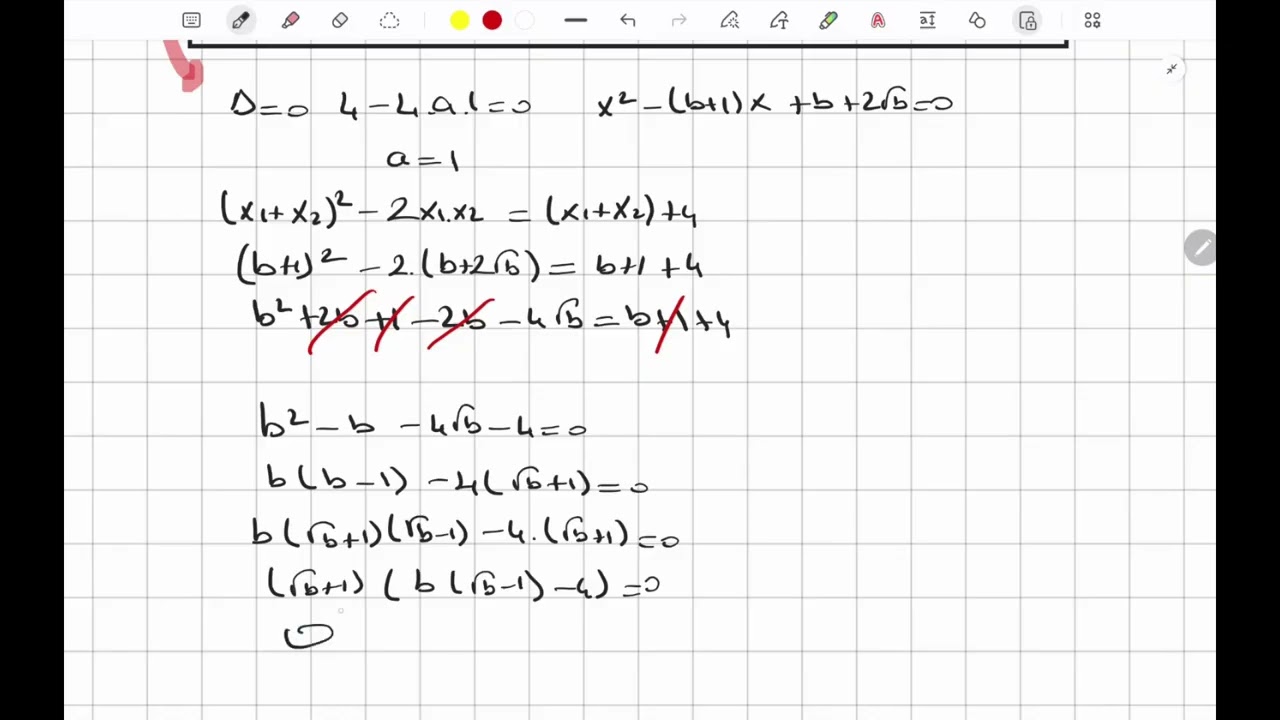 Δ=0 4-4.a.1=0 x²-(b+1)x+b+2√b=0
a=1
(x₁+x₂)²-2x₁.x₂=(x₁+x₂)+4
(b+1)²-2.(b+2√b)=b+1+4
b²+2b+1-2b-4√b=b+1+4
b²-b-4√b-4=0
b(b-1)-4(√b+1)=0
b(√b+1)(√b-1)-4.(√b+1)=0
(√b+1)(b(√b-1)-4)=0